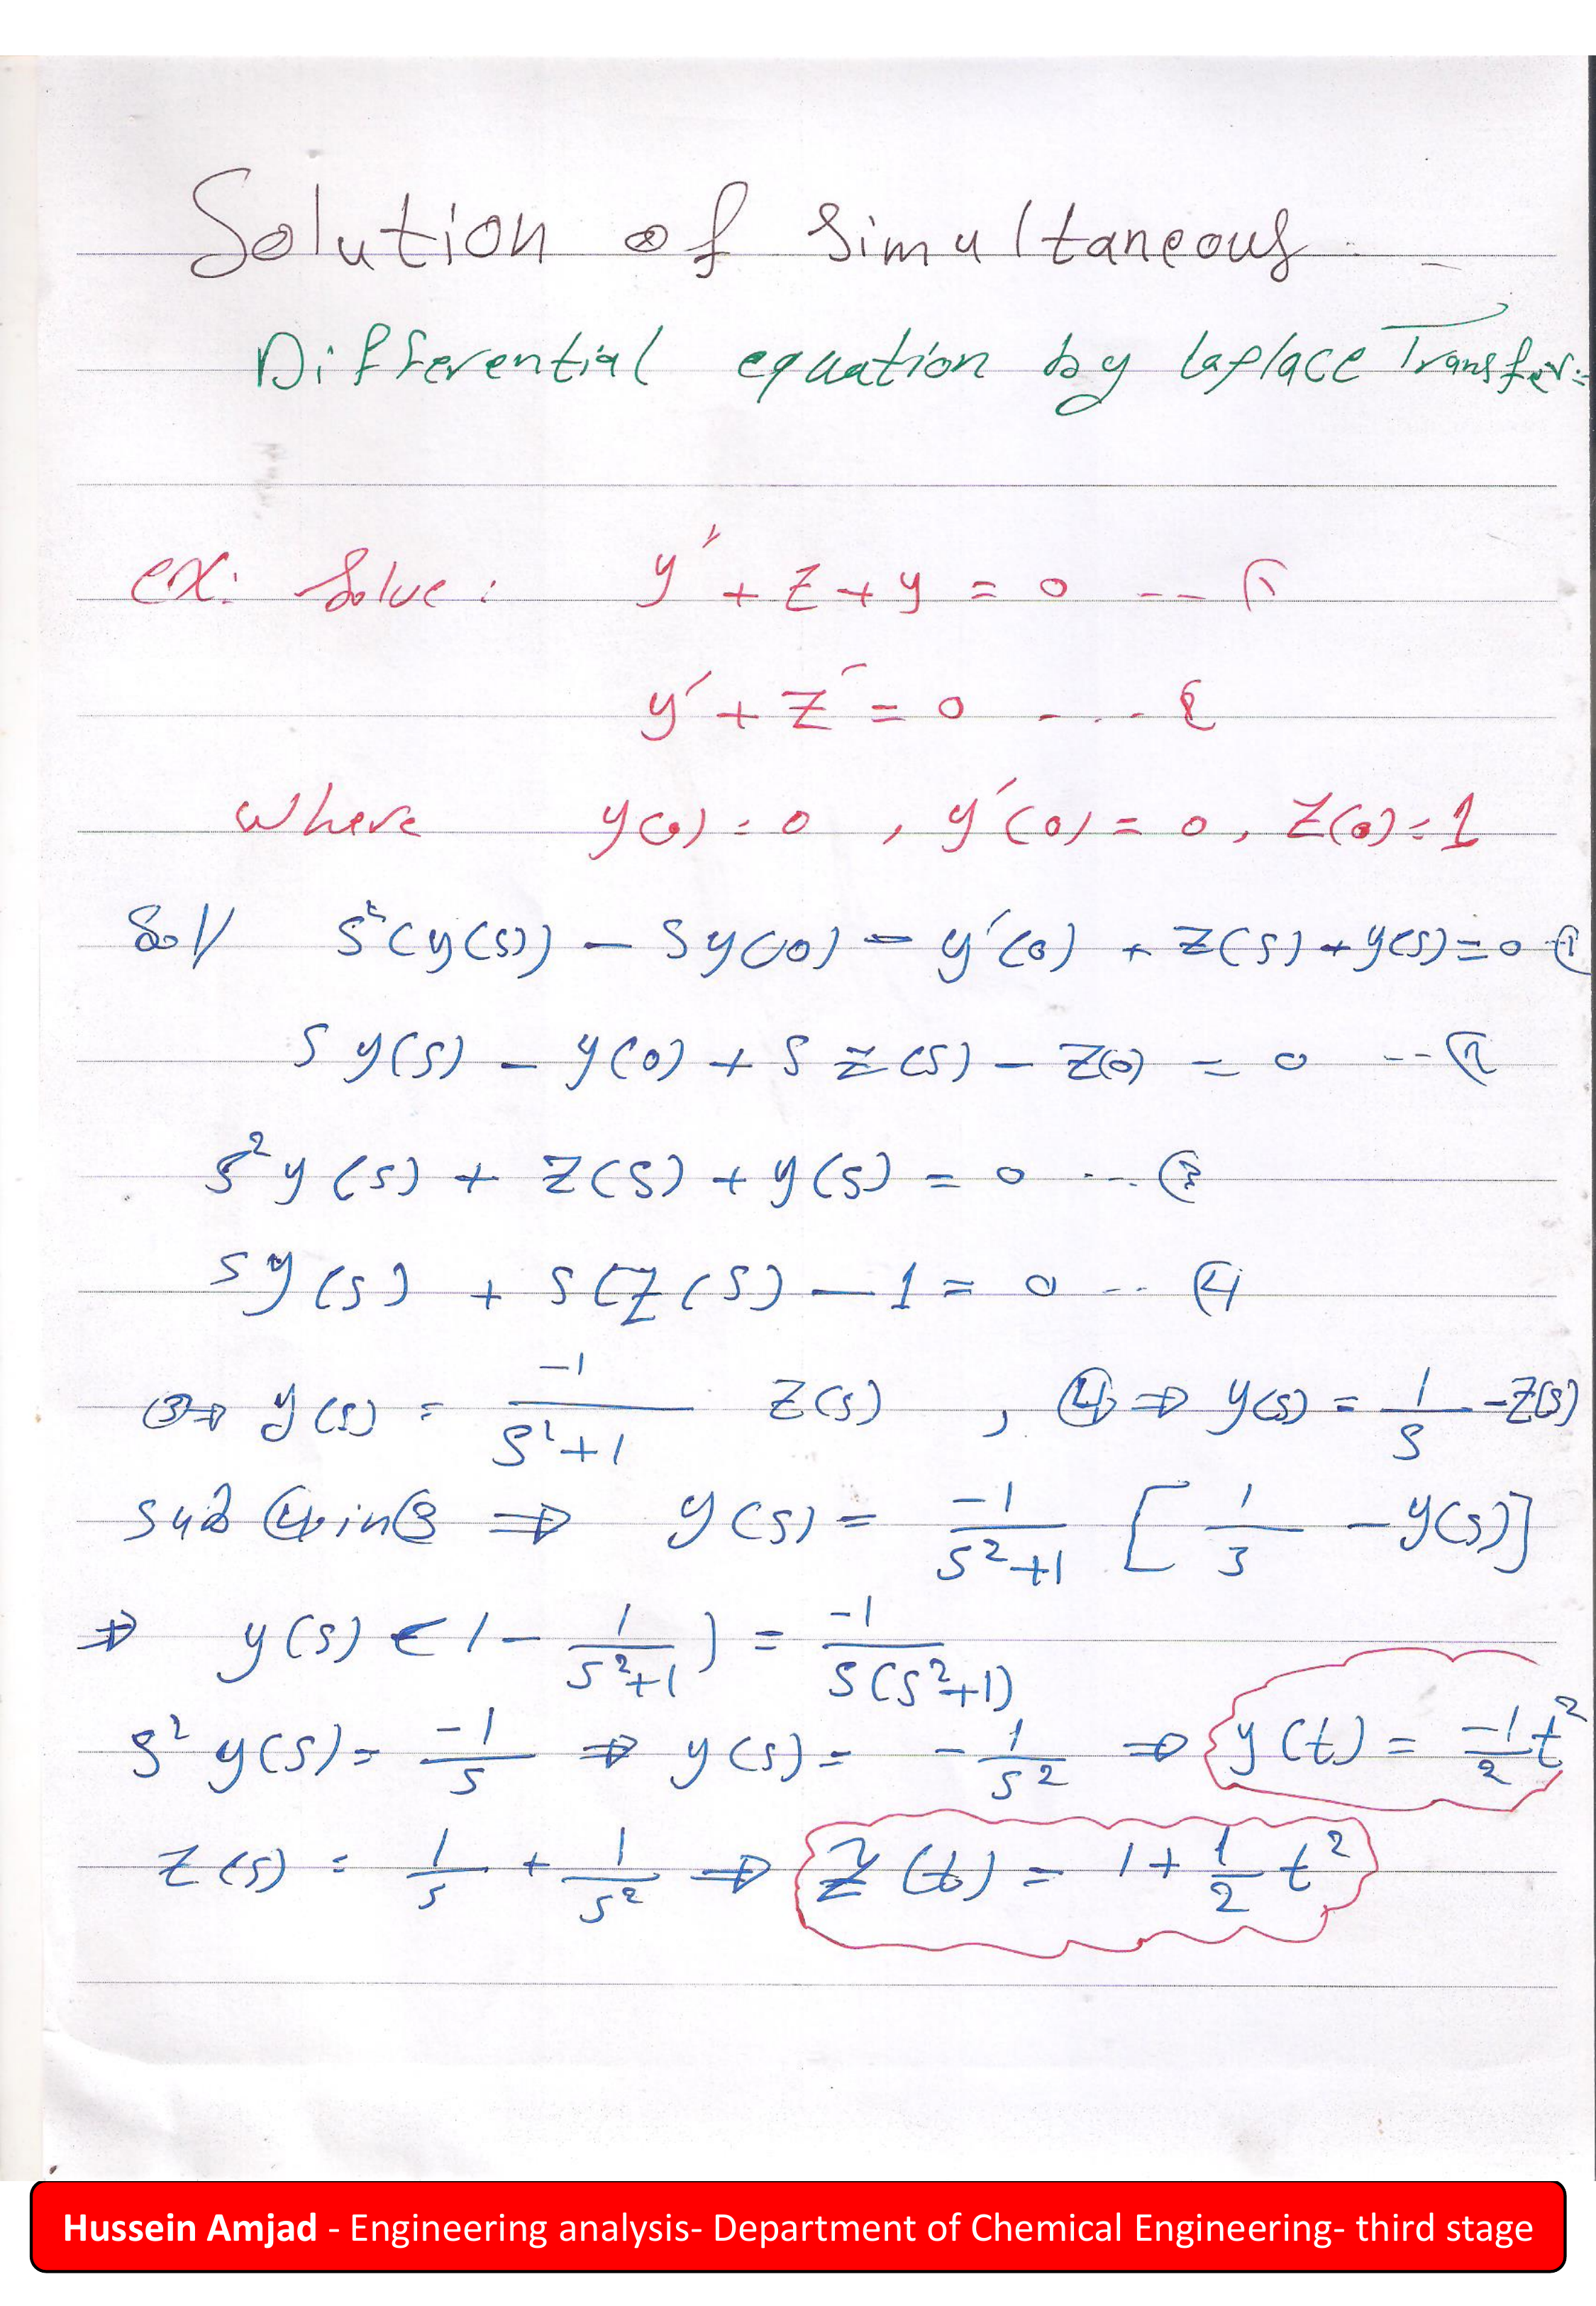 Solution of Simultaneous
Differential equation by Laplace Transfer:
ex: Solve: y″ + z + y = 0 --- ①
y′ + z′ = 0 ---- ②
where y(0) = 0 , y′(0) = 0 , z(0) = 1
Sol/ S²(y(s)) - S y(0) - y′(0) + z(s) + y(s) = 0 -- ①
S y(s) - y(0) + S z(s) - z(0) = 0 --- ②
S² y(s) + z(s) + y(s) = 0 --- ③
S y(s) + S(z(s) - 1 = 0 --- ④
③⇒ y(s) = -1/(S²+1) z(s) , ④ ⇒ y(s) = 1/S - z(s)
sub ④ in ③ ⇒ y(s) = -1/(S²+1) [ 1/3 - y(s)]
⇒ y(s) (1 - 1/(S²+1)) = -1/(S(S²+1))
S² y(s) = -1/S ⇒ y(s) = - 1/S² ⇒ y(t) = -1/2 t²
z(s) = 1/S + 1/S² ⇒ z(t) = 1 + 1/2 t²
Hussein Amjad - Engineering analysis- Department of Chemical Engineering- third stage